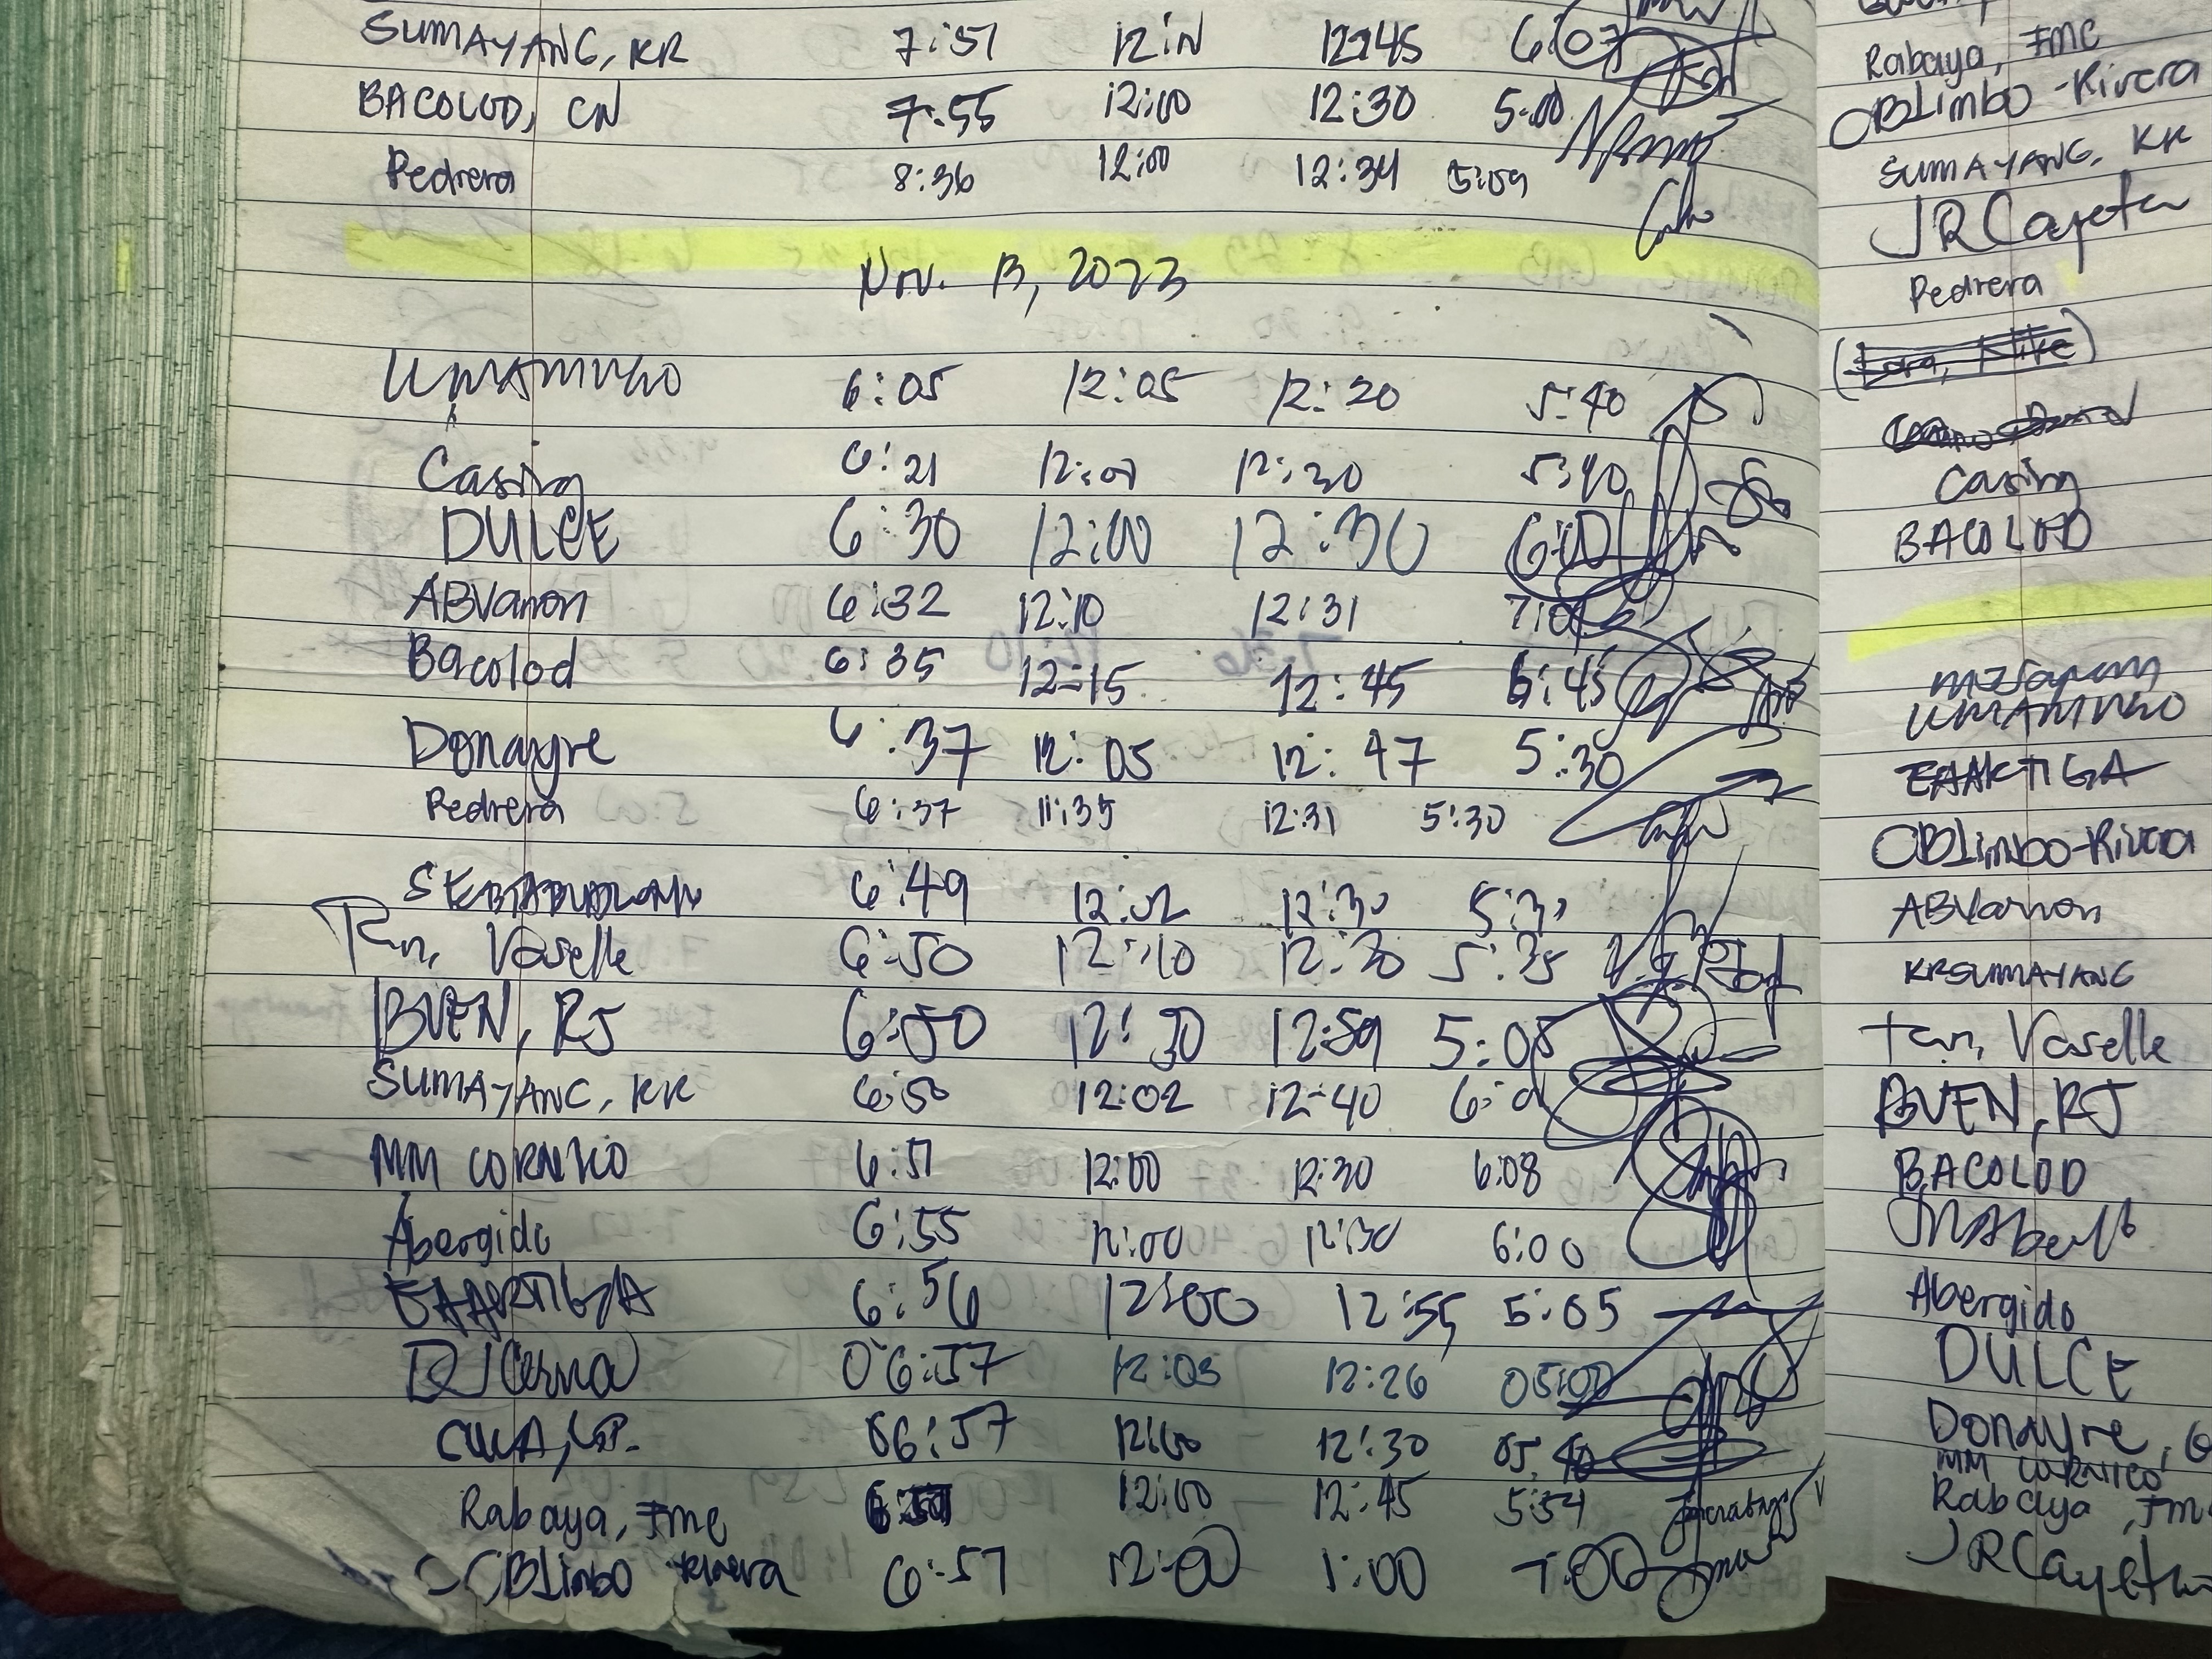 SUMAYANG, KR 7:51 12:N 12:45 6:07
BACOLOD, CN 7:55 12:00 12:30 5:00
Pedrera 8:36 12:00 12:34 5:09
Nov. 13, 2023
UMAMINGO 6:05 12:05 12:20 5:40
Casing 6:21 12:01 12:30 5:40
DULCE 6:30 12:00 12:30 6:00
ABVarron 6:32 12:10 12:31
Bacolod 6:35 12:15 12:45 6:45
Donayre 6:37 12:05 12:47 5:30
Pedrera 6:37 11:35 12:31 5:30
6:49 12:02 12:30 5:31
Tan, Vaselle 6:50 12:10 12:30 5:35
BUEN, RJ 6:50 12:30 12:59 5:05
SUMAYANG, KR 6:50 12:02 12:40
MM CORNICO 6:51 12:00 12:30 6:08
Abergido 6:55 12:00 12:30 6:00
EAARTIGA 6:56 12:00 12:55 5:05
DJCerna 06:57 12:03 12:26 05:00
06:57 12:00 12:30 05:40
Rabaya, FMC 12:00 12:45 5:54
OBLimbo-Rivera 6:57 12:00 1:00 7:00
Rabaya, FMC
OBLimbo-Rivera
SUMAYANG, KR
JRCayetan
Pedrera
Casing
BACOLOD
UMAMINGO
EAARTIGA
OBLimbo-Rivera
ABVarron
KRSUMAYANG
Tan, Vaselle
BUEN, RJ
BACOLOD
Abergido
DULCE
Donayre,
MM CORNICO
Rabaya, FM
JRCayetan